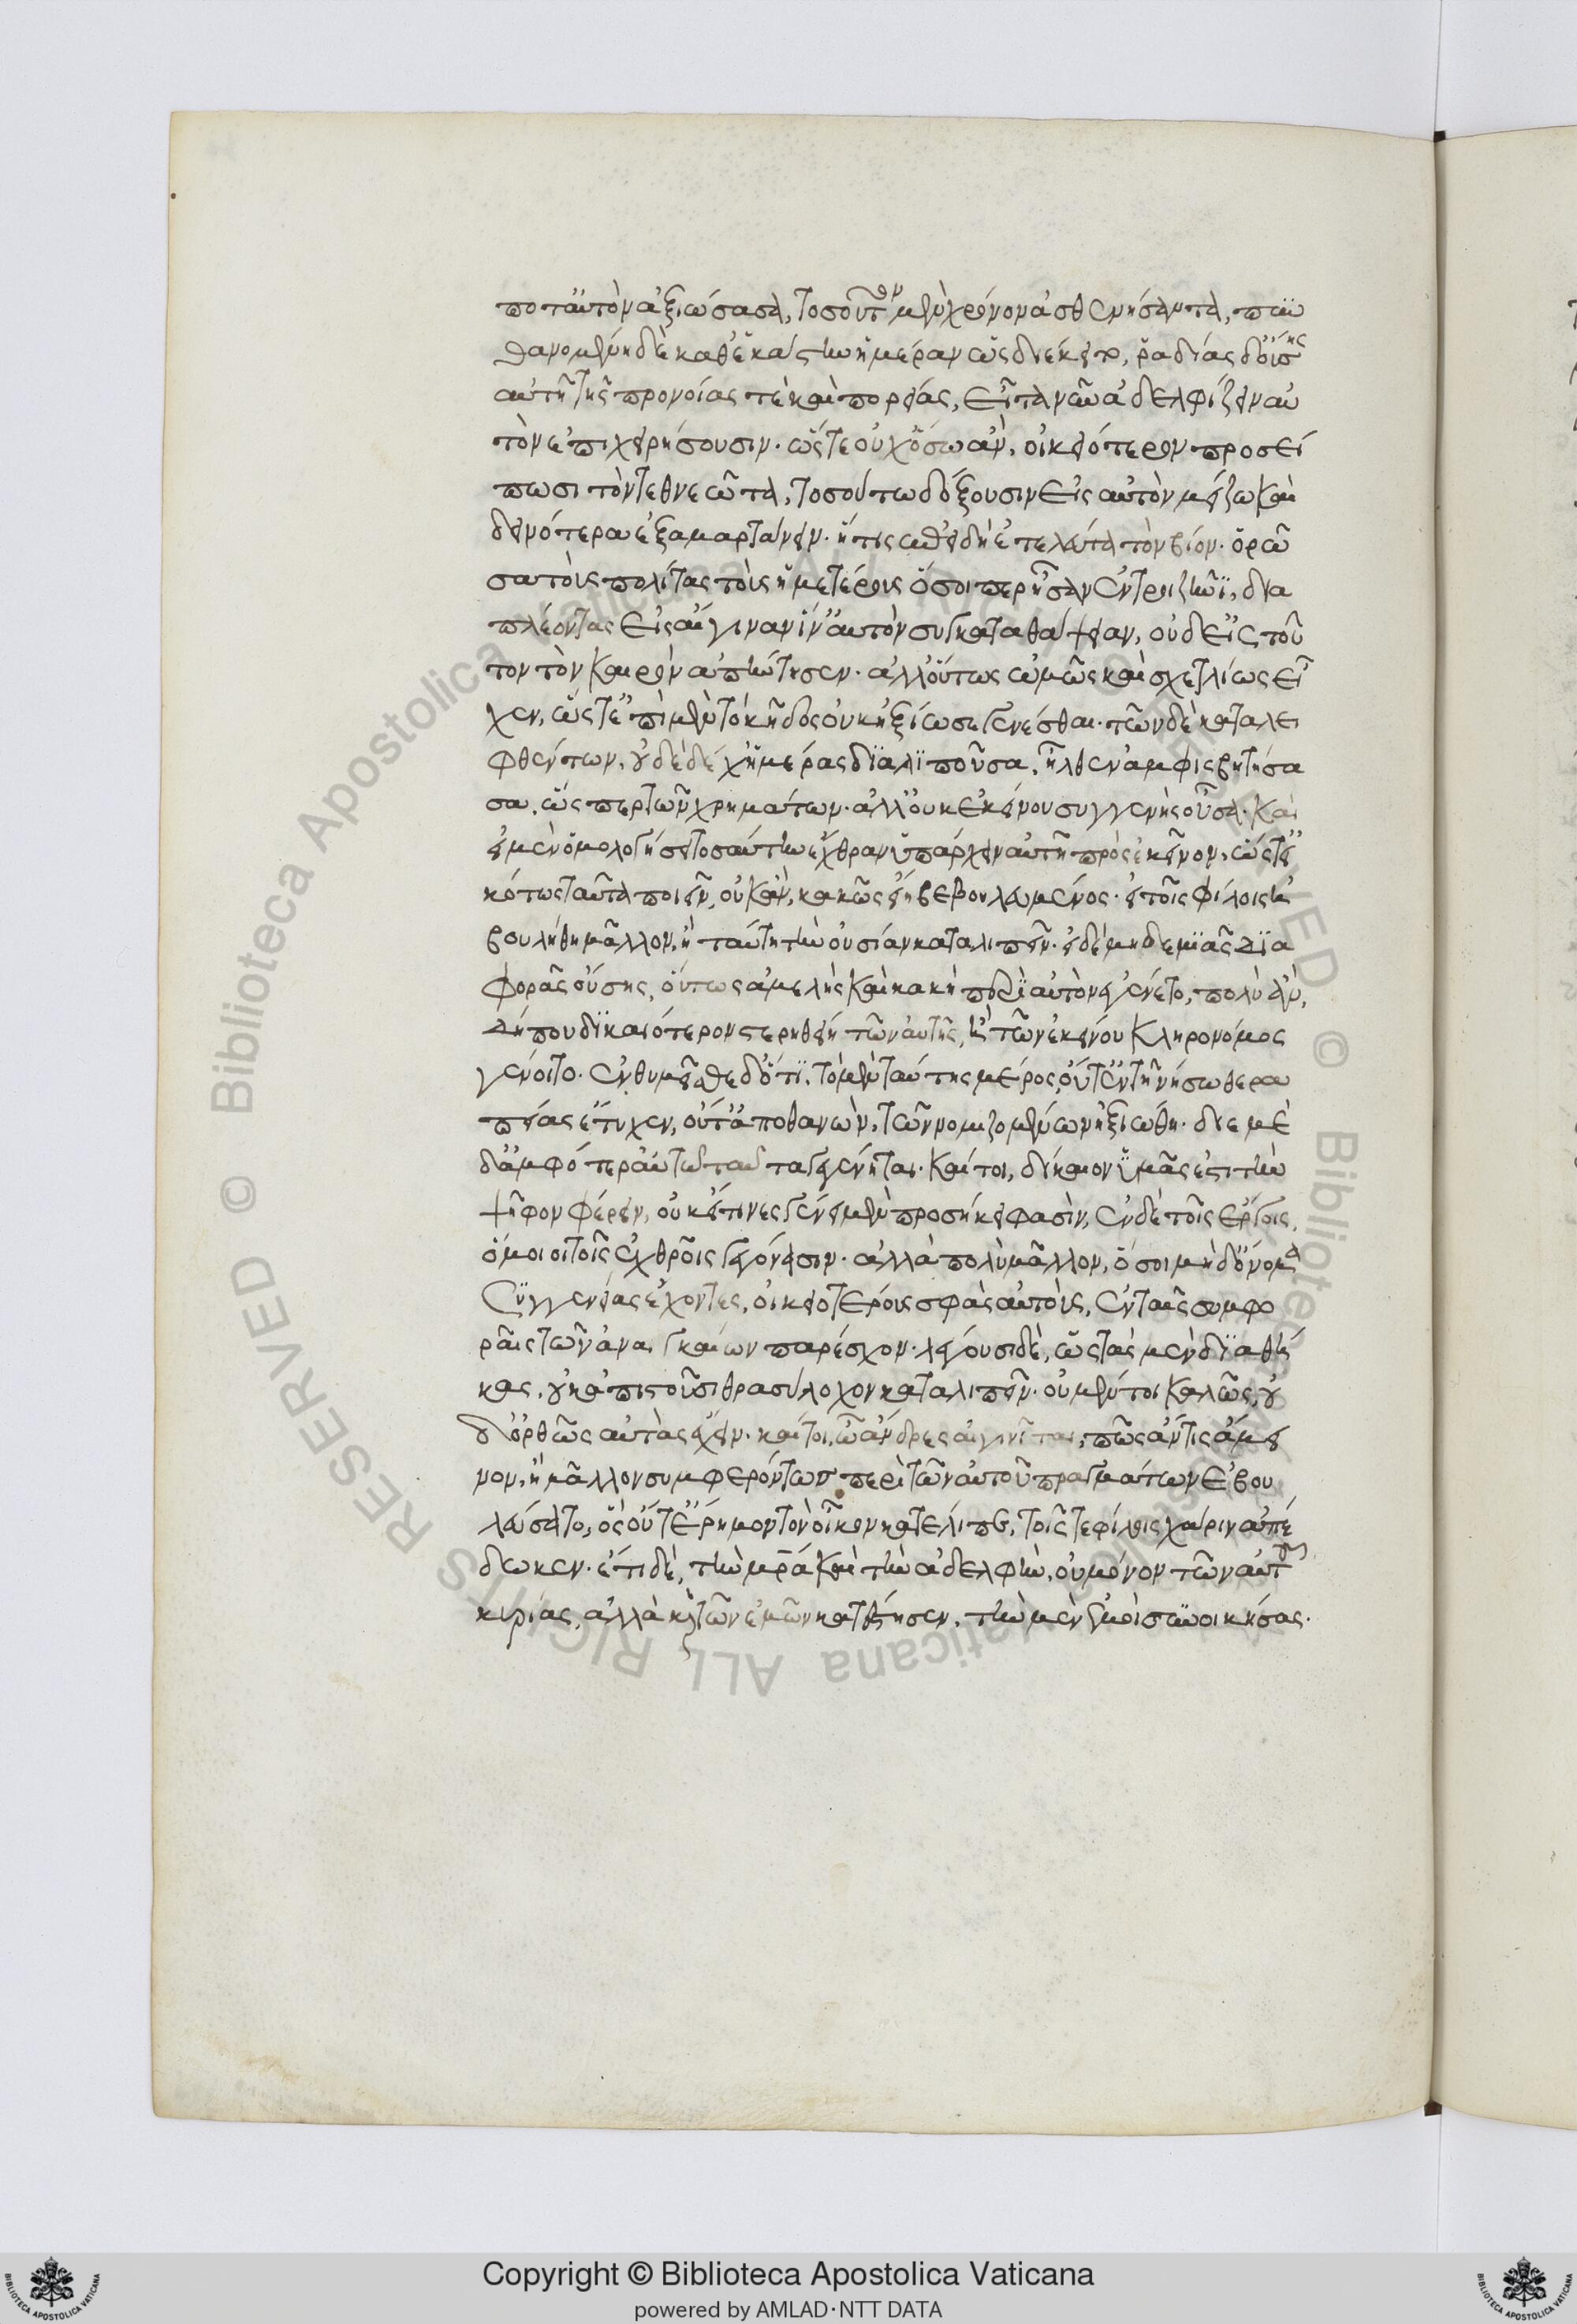 ποτ' αὐτὸν ἀξιώσασα, τοσοῦτον μὲν χρόνον ἀσθενήσαντα, πυν
θανομένη δὲ καθ' ἑκάστην ἡμέραν ὡς διέκειτο, ῥαδίας δ' οὔσης
αὐτῆ τῆς προνοίας τὲ καὶ πορείας, εἶτα νῦν ἀδελφίζειν αὐ
τὸν ἐπιχειρήσουσιν. ὥστε οὐχ ὅσω ἂν, οἰκειότερον προσεί
πωσι τὸν τεθνεῶτα, τοσούτω δόξουσιν εἰς αὐτὸν μείζω καὶ
δεινότερα ἐξαμαρτάνειν. ἥτις ἐπειδὴ ἐτελεύτα τὸν βίον. ὁρῶ
σα τοὺς πολίτας τοὺς ἡμετέρους ὅσοι περ ἦσαν ἐν τροιζῆνι, δια
πλέοντας εἰς αἴγιναν ἵν' αὐτὸν συγκαταθάψειαν, οὐδ' εἰς τοῦ
τον τὸν καιρὸν ἀπήντησεν. ἀλλ' οὕτως ὠμῶς καὶ σχετλίως εἶ
χεν, ὥστ' ἐπὶ μὲν τὸ κῆδος οὐκ ἠξίωσε γενέσθαι. τῶν δὲ καταλει
φθέντων, οὐδὲ δέχ' ἡμέρας διαλιποῦσα, ἦλθεν ἀμφισβητήσα
σα, ὥσπερ τῶν χρημάτων. ἀλλ' οὐκ ἐκείνου συγγενὴς οὖσα. καὶ
εἰ μὲν ὁμολογήσει τοσαύτην ἔχθραν ὑπάρχειν αὐτῆ πρὸς ἐκεῖνον, ὥστ' εἰ
κότως ταῦτα ποιεῖν, οὐκ ἂν, κακῶς εἴη βεβουλευμένος. εἰ τοῖς φίλοις ἐ
βουλήθη μᾶλλον, ἢ ταύτη τὴν οὐσίαν καταλιπεῖν. εἰ δὲ μηδεμιᾶς δια
φορᾶς οὔσης, οὕτως ἀμελὴς καὶ κακὴ περὶ αὐτὸν ἐγένετο, πολὺ ἂν,
δήπου δικαιότερον στερηθείη τῶν αὑτῆς, ἢ τῶν ἐκείνου κληρονόμος
γένοιτο. ἐνθυμεῖσθε δ' ὅτι, τὸ μὲν ταύτης μέρος, οὔτ' ἐν τῆ νήσω θερα
πείας ἔτυχεν, οὔτ' ἀποθανὼν, τῶν νομιζομένων ἠξιώθη. δι' ἐμὲ
δ' ἀμφότερα αὐτῶ ταῦτα γεγένηται. καίτοι, δίκαιον ὑμᾶς ἐστι τὴν
ψῆφον φέρειν, οὐκ εἴ τινες γένει μὲν προσήκειν φασὶν, ἐν δὲ τοῖς ἔργοις,
ὅμοιοι τοῖς ἐχθροῖς γεγόνασιν. ἀλλὰ πολὺ μᾶλλον, ὅσοι μηδ' ὄνομα
συγγενείας ἔχοντες, οἰκειοτέρους σφᾶς αὐτοὺς, ἐν ταῖς συμφο
ραῖς τῶν ἀναγκαίων παρέσχον. λέγουσι δὲ, ὡς τὰς μὲν διαθή
κας, οὐκ ἀπιστοῦσι θρασύλοχον καταλιπεῖν. οὐ μέντοι καλῶς, οὐ
δ' ὀρθῶς αὐτὰς ἔχειν. καίτοι, ὦ ἄνδρες αἰγινῆται, πῶς ἄν τις ἄμει
νον, ἢ μᾶλλον συμφερόντως περὶ τῶν αὑτοῦ πραγμάτων ἐβου
λεύσατο, ὃς οὔτ' ἔρημον τὸν οἶκον κατέλιπε, τοῖς τε φίλοις χάριν ἀπέ
δωκεν. ἔτι δὲ, τὴν μρ̄α καὶ τὴν ἀδελφὴν, οὐ μόνον τῶν αὐτῶν
κυρίας, ἀλλὰ καὶ τῶν ἐμῶν κατέστησεν, τὴν μὲν ἐμοὶ συνοικήσας.